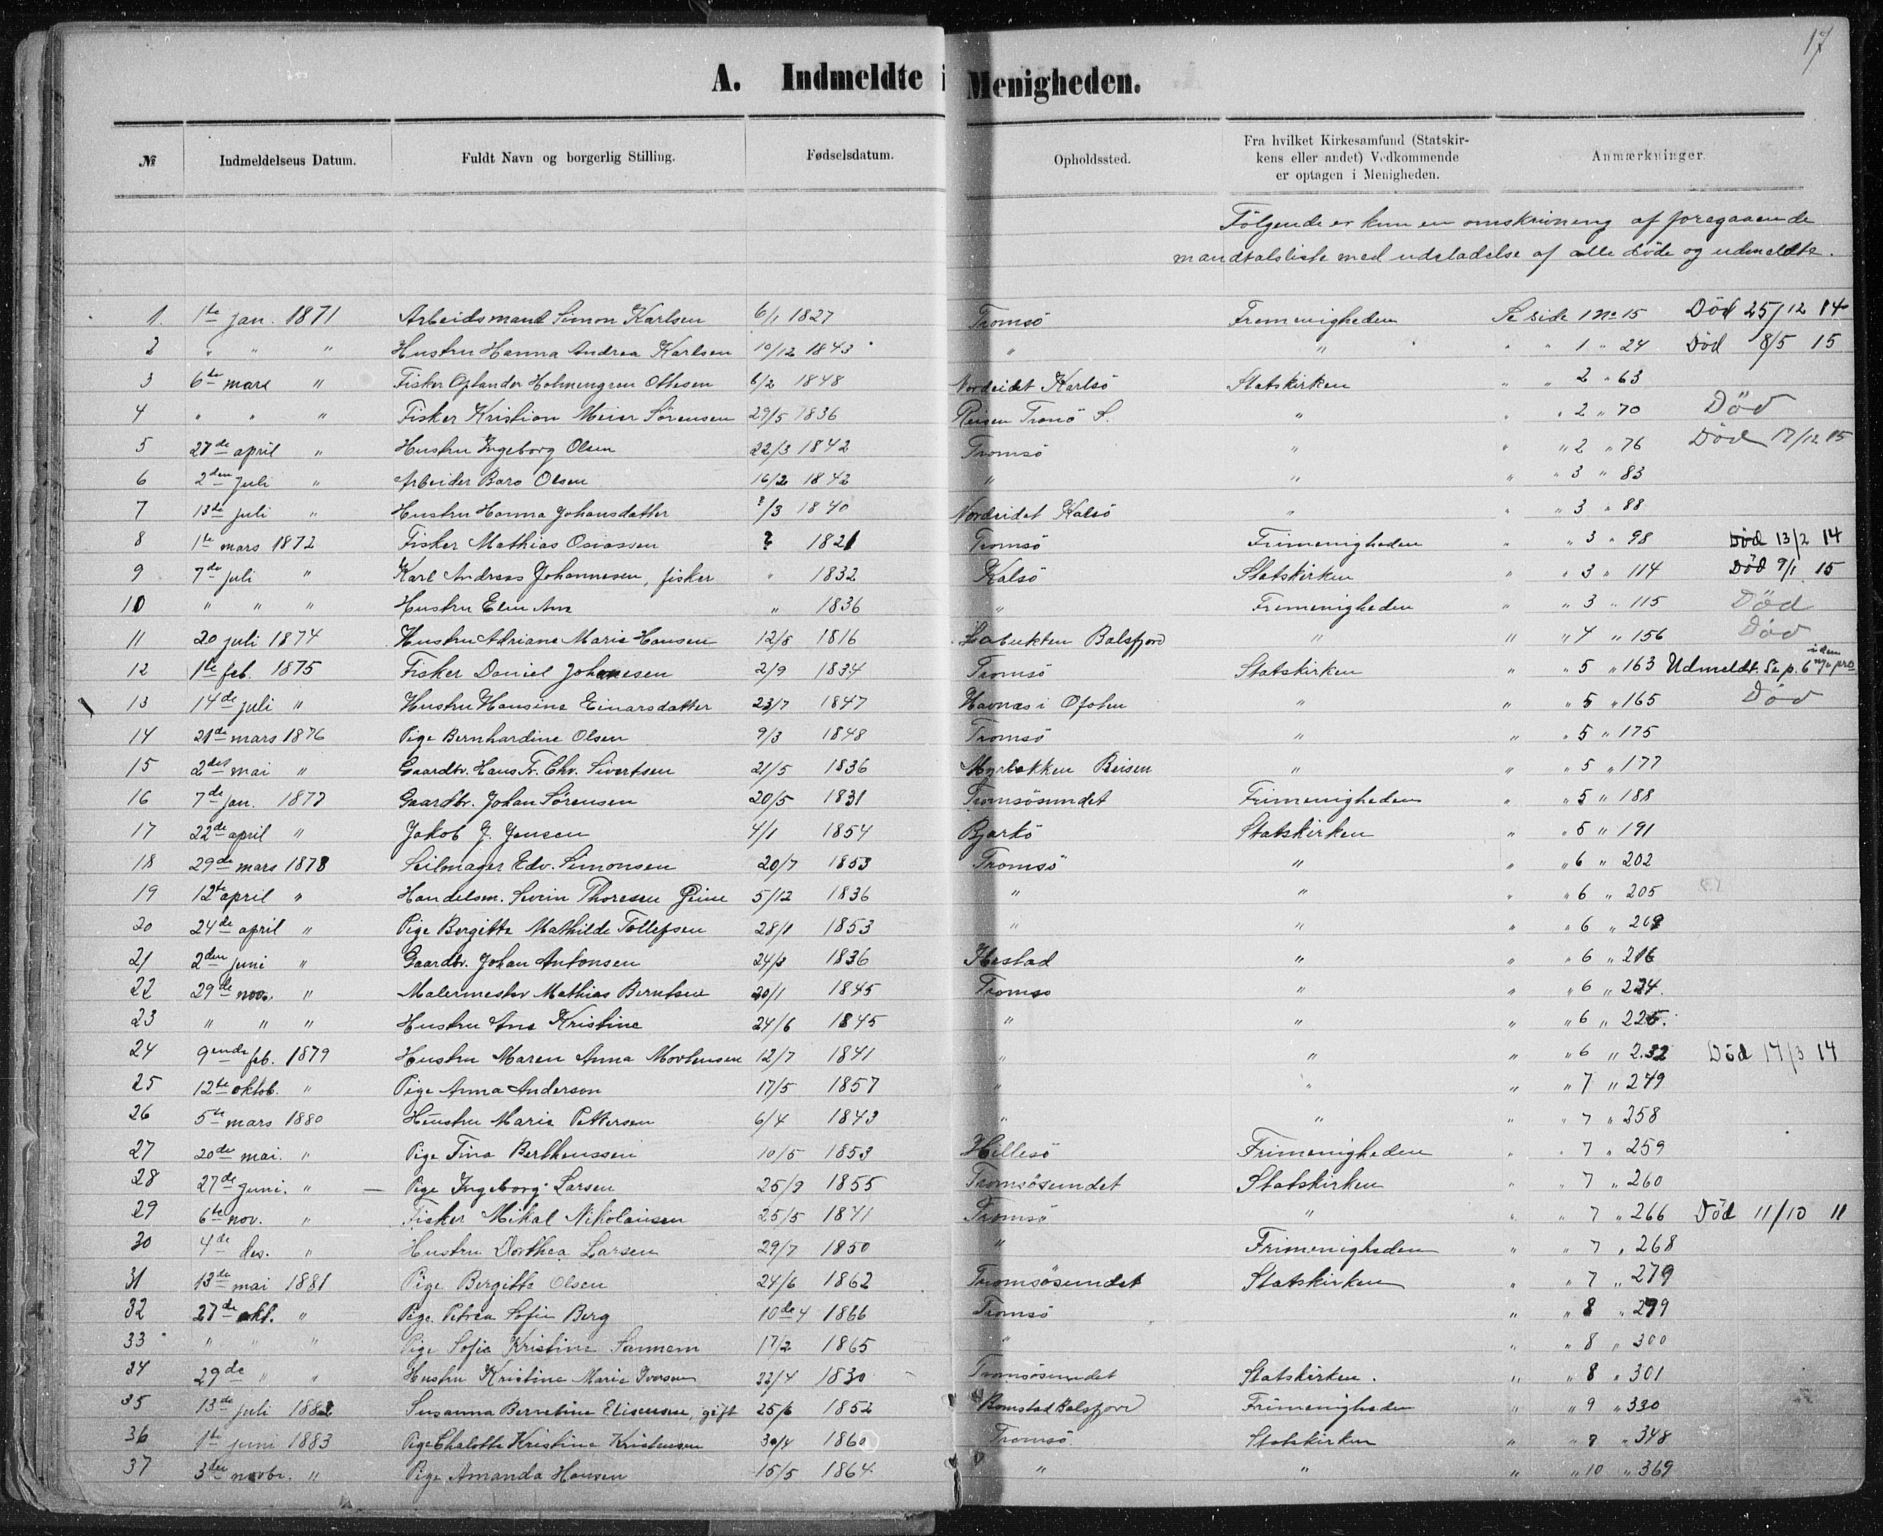 17
A. Indmeldte i Menigheden.
№ Indmeldelseus Datum. Fuldt Navn og borgerlig Stilling. Fødselsdatum. Opholdssted. Fra hvilket Kirkesamfund (Statskir-
kens eller andet) Vedkommende
er optagen i Menigheden. Anmærkninger.
Følgende er kun en omskrivning af foregaaende
mandtalsliste med udeladelse af alle døde og udmeldte.
1. 1ste jan. 1871 Arbeidsmand Simon Karlsen 6/1 1827 Tromsö Fremenigheden Se side 1 No 15 Död 25/12 14
2 " " " Hustru Hanna Andrea Karlsen 10/12 1843 " " " " 1 " 24 Död 8/5 15
3 6te mars " Fisker Holmengren Ottesen 6/2 1848 Nordeidet Karlsö Statskirken " " 2 " 63
4 " " " Fisker Kristian Meier Sörensen 29/5 1836 Reisen Tromö S. " " " 2 " 70 Död
5 27de april " Hustru Ingeborg Olsen 22/3 1842 Tromsö " " " 2 " 76 Död 17/12 15
6 2den juli " Arbeider Baro Olsen 16/2 1842 " " " " 3 " 83
7 13de juli " Hustru Hanna Johansdatter ?/3 1840 Nordeidet Kalsö " " " 3 " 88
8 1te mars 1872 Fisker Mathias Osiassen ? 1821 Tromsö Frimenigheden " " 3 " 98 Död 13/2 14
9 7de juli " Karl Andreas Johannesen, fisker " 1832 Kalsö Statskirken " " 3 " 114 Död 9/1 15
10 " " " Hustru Elen Ane " 1836 " Fremenigheden " " 3 " 115 Död
11 20 juli 1874 Hustru Adriane Marie Hansen 12/8 1816 Balsfjord " " " 4 " 156 Död
12 1te feb. 1875 Fisker Daniel Johanesen 2/9 1834 Tromsö Statskirken " " 5 " 163 Udmeldt. Se p. 6
13 14de juli " Hustru Hansine Einarsdatter 23/7 1847 Havnæs i Ofoten " " " 5 " 165 Död
14 21de mars 1876 Pige Bernhardine Olsen 9/3 1848 Tromsö " " " 5 " 175
15 2det mai " Gaardbr. Hans Fr. Chr. Sivertsen 21/5 1836 Myrbakken Reisen " " " 5 " 177
16 7de jan. 1877 Gaardbr. Johan Sörensen 20/5 1831 Tromsösundet Frimenigheden " " 5 " 188
17 22de april " Jakob J. Jensen 4/1 1854 Bjarkö Statskirken " " 5 " 191
18 29de mars 1878 Seilmager Edv. Simonsen 20/7 1853 Tromsö " " " 6 " 202
19 12te april " Handelsm. Sevrin Thoresen Grine 5/12 1836 " " " " 6 " 205
20 24de april " Pige Bergitte Mathilde Tollefsen 28/1 1853 " " " " 6 " 209
21 2den juni " Gaardbr. Johan Antonsen 24/3 1836 Hestad " " " 6 " 216
22 29de nov. " Malermester Mathias Berntsen 20/1 1845 Tromsö " " " 6 " 224.
23 " " " Hustru Ane Kristine 24/6 1845 " " " " 6 " 225.
24 9ende feb. 1879 Hustru Maren Anna Mortensen 12/7 1841 " " " " 6 " 232 Död 17/3 14
25 12te oktob. " Pige Anna Anderson 17/5 1857 " " " " 7 " 249
26 5te mars 1880 Hustru Marie Pettersen 6/4 1843 " " " " 7 " 258
27 20de mai. " Pige Tina Bertheussen 10/5 1853 Hillesö Frimenigheden " " 7 " 259
28 27de juni. " — Pige Ingeborg Larsen 25/9 1855 Tromsösundet Statskirken " " 7 " 260
29 6te nov. " Fisker Mikal Nikolaisen 25/5 1841 Tromsö " " " 7 " 266 Död 11/10 11
30 4de des. " Hustru Dorthea Larsen 29/7 1850 " Frimenigheden " " 7 " 268
31 13de mai 1881 Pige Bergitte Olsen 24/6 1862 Tromsösundet Statskirken " " 7 " 279
32 27de okt. " Pige Petrea Sofie Berg 10de 4 1866 Tromsö " " 8 " 299
33 " " " Pige Sofie Kristine 17/2 1865 " " " 8 " 300
34 29de " " Hustru Kristine Marie Iversen 22/4 1830 Tromsösundet Statskirken. " " 8 " 301
35 13de juli 1882 Susanna Berretine Elisensen, gift 25/6 1852 Balsfjord Frimenigheden " " 9 " 330
36 1te juni 1883 Pige Chalotte Kristine Kristensen 30/4 1860 Tromsö Statskirken " " 9 " 348
37 3den novbr. " Pige Amanda Hansen 15/5 1864 " " " " 10 " 369